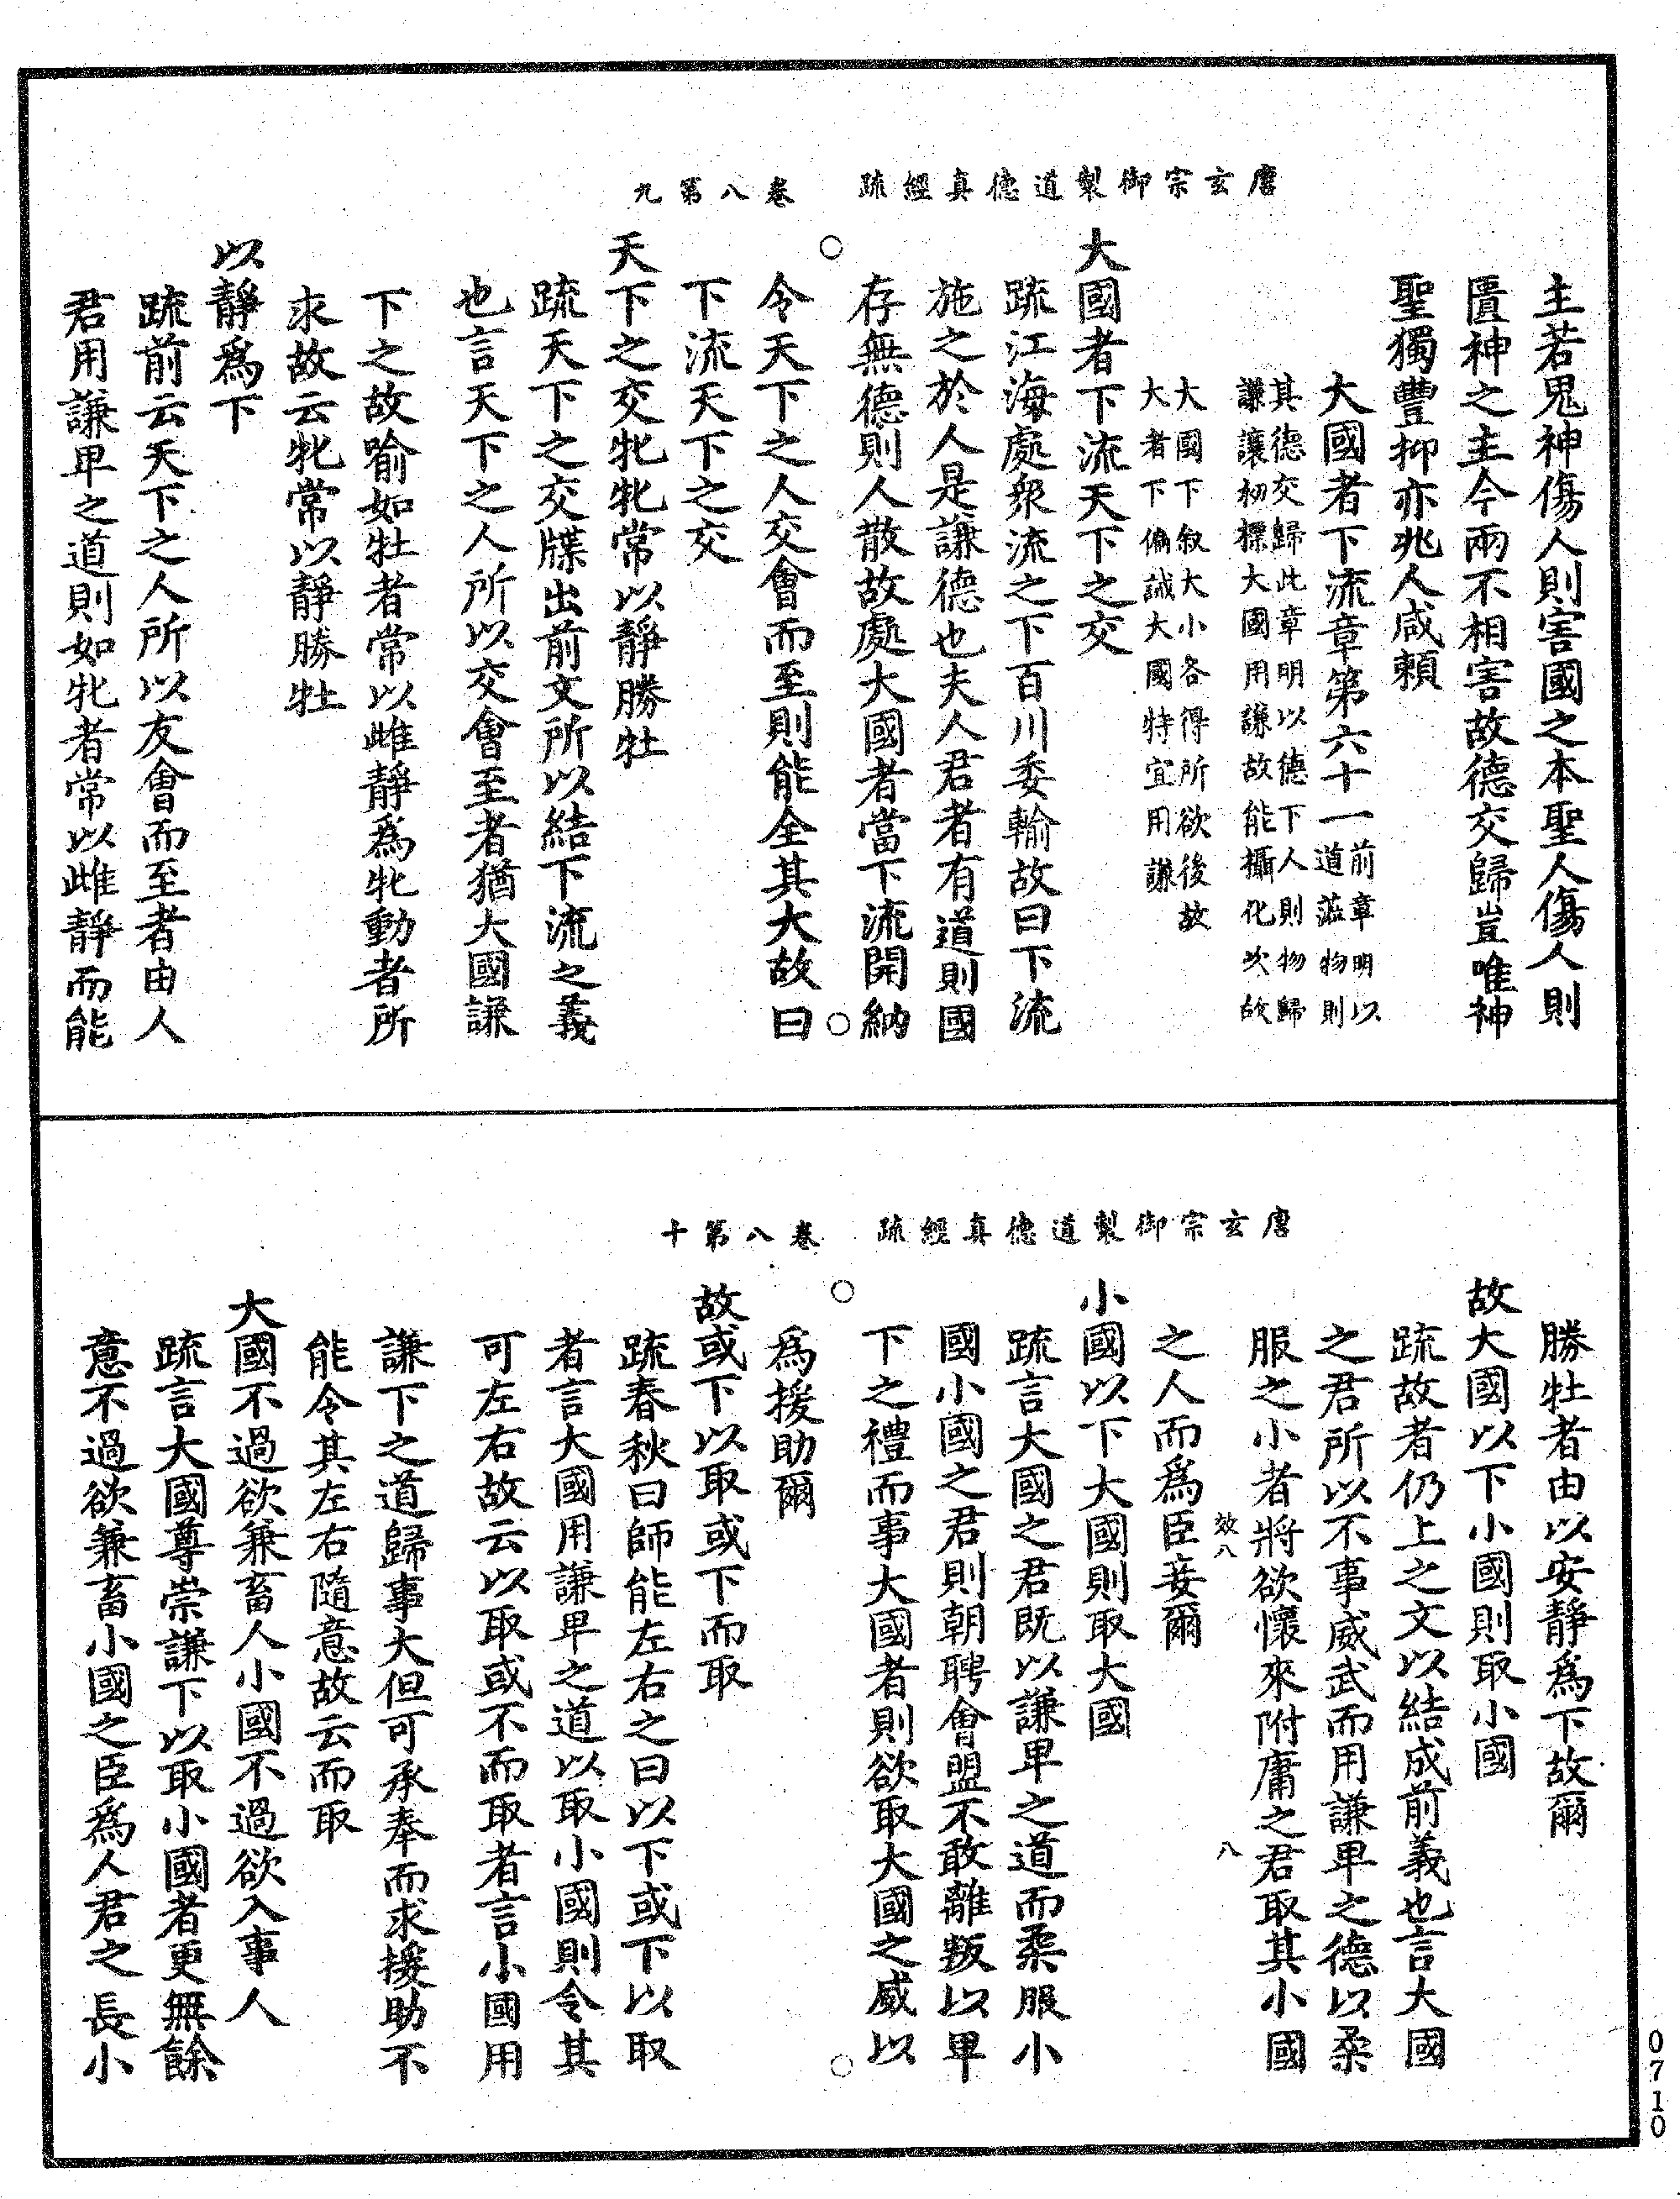 唐玄宗御製道德真經疏　卷八第九
主若鬼神傷人則害國之本聖人傷人則
匱神之主今兩不相害故德交歸豈唯神
聖獨豐抑亦兆人咸賴
大國者下流章第六十一前章明以
道蒞物則
其德交歸此章明以德下人則物歸
謙讓初標大國用謙故能攝化次故
大國下敘大小各得所欲後故
大者下偏誡大國特宜用謙
大國者下流天下之交
疏江海處衆流之下百川委輸故曰下流
施之於人是謙德也夫人君者有道則國
存無德則人散故處大國者當下流開納
令天下之人交會而至則能全其大故曰
下流天下之交
天下之交牝牝常以靜勝牡
疏天下之交牒出前文所以結下流之義
也言天下之人所以交會至者猶大國謙
下之故喻如牡者常以雌靜爲牝動者所
求故云牝常以靜勝牡
以靜爲下
疏前云天下之人所以友會而至者由人
君用謙卑之道則如牝者常以雌靜而能
唐玄宗御製道德真經疏　卷八第十
勝牡者由以安靜爲下故爾
故大國以下小國則取小國
疏故者仍上之文以結成前義也言大國
之君所以不事威武而用謙卑之德以柔
服之小者將欲懷來附庸之君取其小國
效八　八
之人而爲臣妾爾
小國以下大國則取大國
疏言大國之君既以謙卑之道而柔服小
國小國之君則朝聘會盟不敢離叛以卑
下之禮而事大國者則欲取大國之威以
爲援助爾
故或下以取或下而取
疏春秋曰師能左右之曰以下或下以取
者言大國用謙卑之道以取小國則令其
可左右故云以取或不而取者言小國用
謙下之道歸事大但可承奉而求援助不
能令其左右隨意故云而取
大國不過欲兼畜人小國不過欲入事人
疏言大國尊崇謙下以取小國者更無餘
意不過欲兼畜小國之臣爲人君之長小
0710